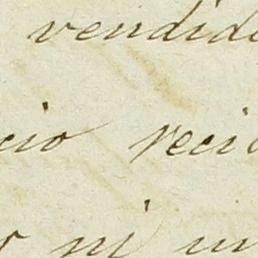 vendido
cio reci
r ni un